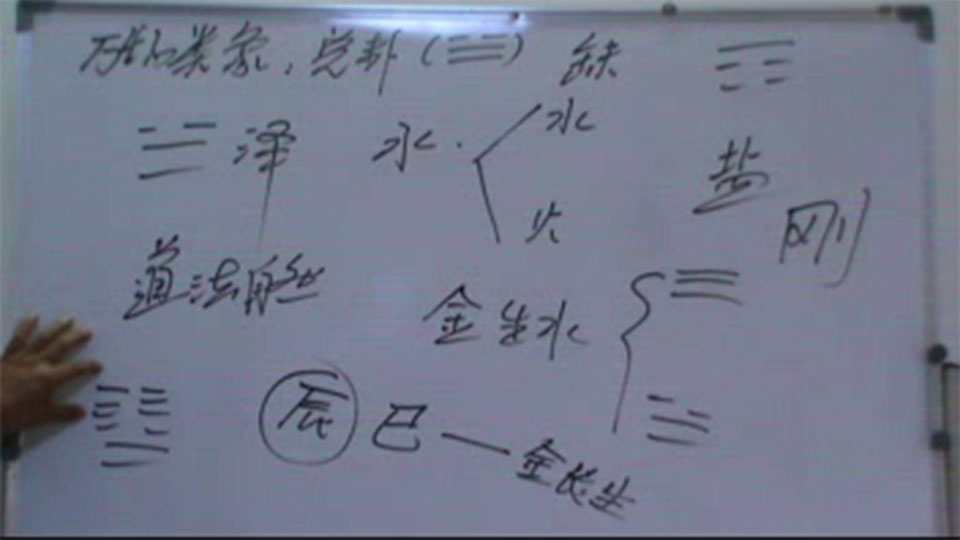 万物类象，兑卦（☰） 缺
泽 水 水
火
盐
刚
道法自然
金生水
辰 巳 — 金长生